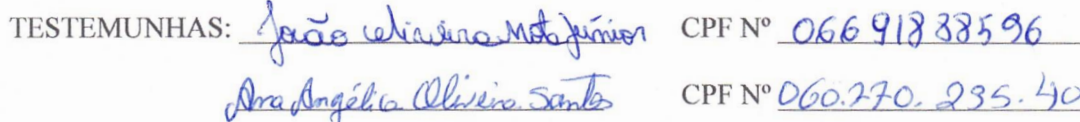 TESTEMUNHAS: João Oliveira Mota Júnior CPF Nº 06691838596
Ana Angélica Oliveira Santos CPF Nº 060.270.295.40